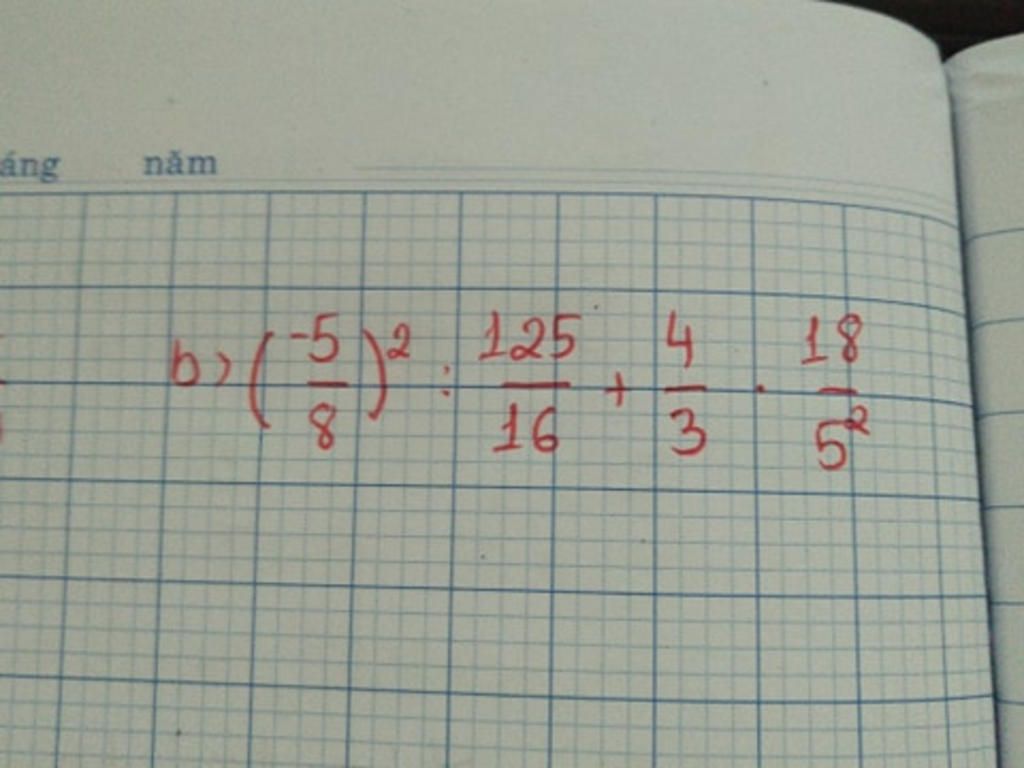 áng năm
b) (-5/8)² : 125/16 + 4/3 . 18/5²